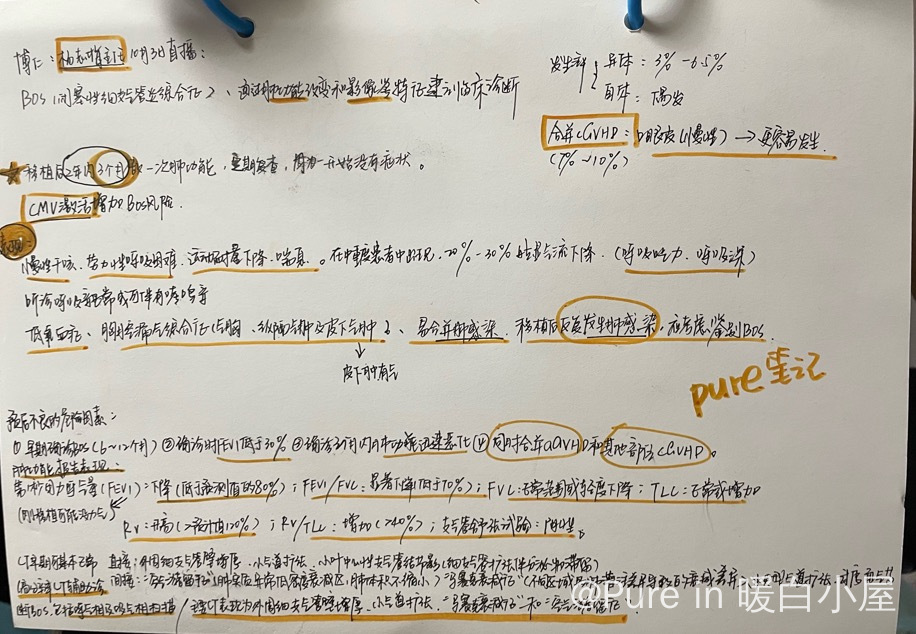 博仁：主任10月3日直播：
BOS（闭塞性细支气管炎综合征）、通过肺功能改变和影像学特征来临床诊断
发生率 异体：3% -6.5%
自体：偶发
合并cGVHD：（慢性）→更容易发生
（7% ~10%）
★移植后2年内3个月做一次肺功能，定期复查，一开始没有症状。
CMV激活增加BOS风险.
表现：
慢性干咳、劳力性呼吸困难、运动耐量下降、喘息。在中重度患者中出现、20%-30% 气流下降.（呼吸 力、呼吸深）
听诊呼吸音正常或可伴有哮鸣音
低氧血症、胸腔漏气综合征（气胸、纵隔气肿及皮下气肿）、易合并肺感染、移植后反复发生肺感染，应考虑鉴别BOS.
↓
皮下肿有气
pure笔记
预后不良的危险因素：
①早期确诊BOS（6~12个月）②确诊时FEV1低于30% ③确诊3个月内肺功能迅速恶化 ④同时合并aGVHD和其他部位cGVHD。
肺功能报告表现：
第1秒用力呼气量（FEV1）：下降（低于预测值的80%）；FEV1/FVC：显著下降（低于70%）；FVC：正常范围或轻度下降；TLC：正常或增加
RV：升高（>预计值120%）；RV/TLC：增加（>40%）；支气管舒张试验：阴性。
CT早期可基本正常 直接：外周细支气管壁增厚、小气道扩张、小叶中心性支气管结节影（细支气管扩张伴分泌物滞留）
间接：“空气潴留征”（肺实质异常低密度衰减区，肺体积不缩小）、“马赛克衰减征”
断BOS，/ CT表现为外周细支气管壁增厚、小气道扩张、“马赛克衰减征”和“空气潴留征”
@Pure in 暖白小屋